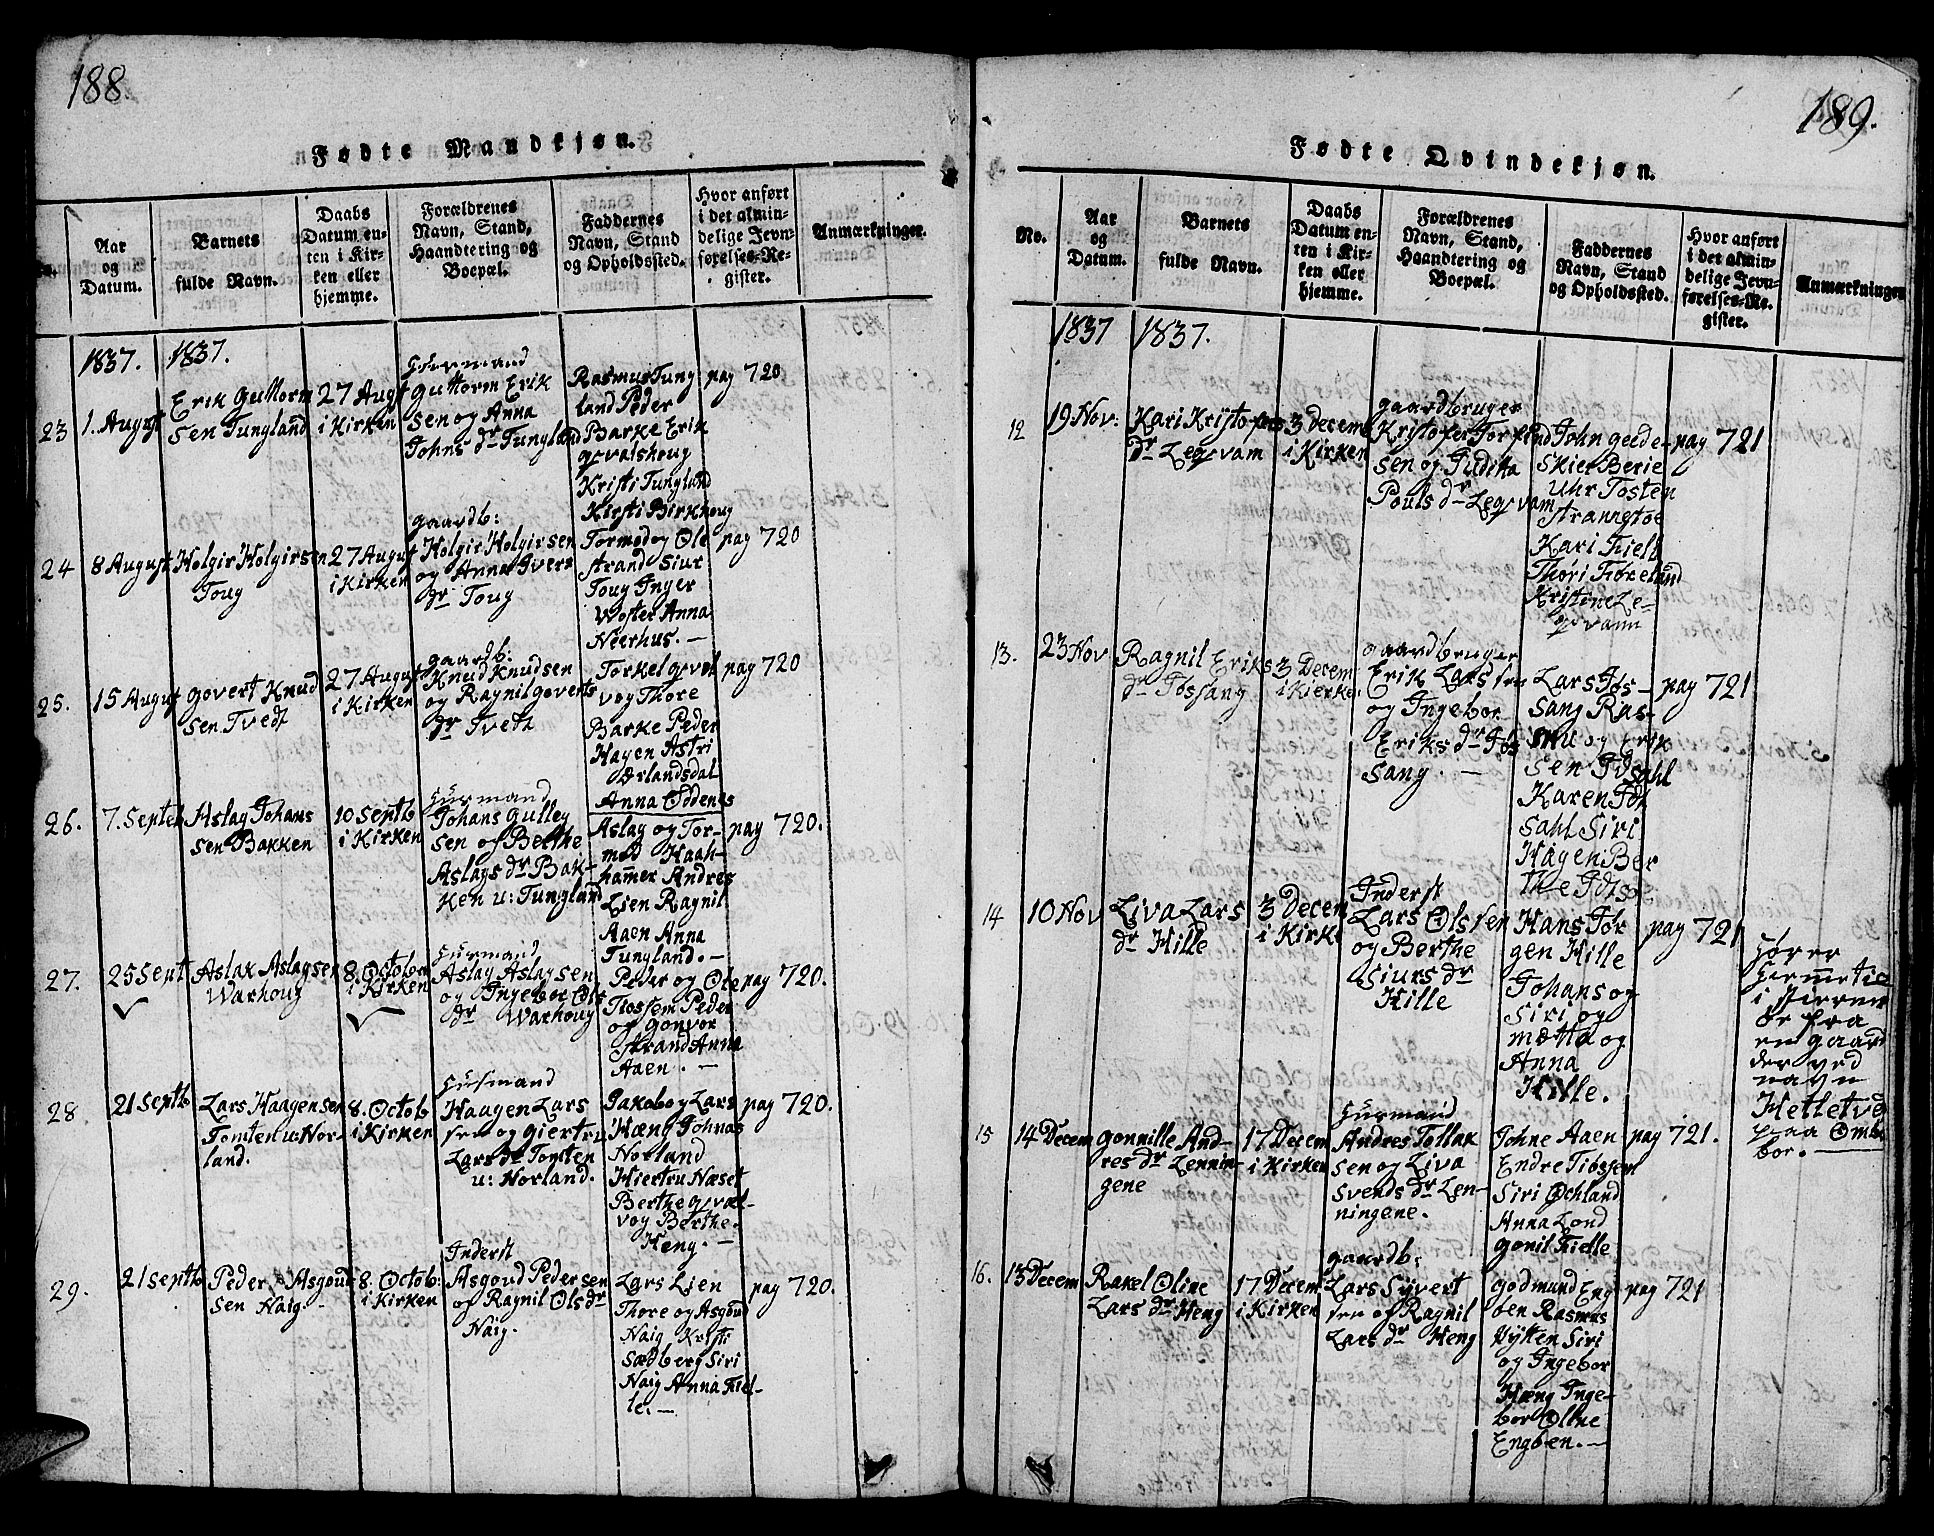 188.
Fødte Mandkjøn.
Aar og Datum.
Barnets fulde Navn.
Daabs Datum enten i Kirken eller hjemme.
Forældrenes Navn, Stand, Haandtering og Boepæl.
Faddernes Navn, Stand og Opholdssted.
Hvor anført i det almindelige Jevnførelses-Register.
Anmærkninger.
1837. 1837.
23
1. August
Erik Guttorm
sen Tungland
27 Augt
i Kirken
Huusmand
Guttorm Erik
sen og Anna
Johns dr Tungland
Rasmus Tung
land Peder
Barke Erik
Qvalshoug
Kristi Tungland
Kirsti Birkhoug
pag 720
24
8 August
Holgir Holgirsen
Toug
27 August
i Kirken
gaardb:
Holgir Holgirsen
og Anna Ivers
dr Toug
Tormod og Ole
strand Siur
Toug Inger
Woster Anna
Neerhus. —
pag 720
25.
15 August
Govert Knud
sen Tvedt
27 August
i Kirken
gaardb:
Knud Knudsen
og Ragnil goverts
dr Tveth
Torkel qvel
vog Thore
Barke Peder
Hagen Astri
Ørlandsdal
Anna Oddenes
pag 720
26.
7. Septeb
Aslag Johans
sen Bakken
10 Septb
i Kirken
Huusmand
Johans Gulley
sen og Berthe
Aslags dr Bak-
ken u: Tungland
Aslag og Tor-
mod Haah-
hammer Andres
Lien Ragnil
Aaen Anna
Tungland. —
pag 720.
27.
25 Sept
Aslak Aslagsen
Warhoug
8. Octob
i Kirken
Huusmand
Aslag Aslagsen
og Ingebor Ols
dr Warhoug
Peder og Ole
Flossem Peder
og Gonvor
strand Anna
Aaen. —
pag 720.
28.
21 Septb
Lars Haagensen
Tomten u: Nor-
land.
8. Octob
i Kirken
Huusmand
Haagen Lars
sen og Giertru
Lars dr Tomten
u: Norland.
Jakob og Lars
Hæng Johnas
Norland
Hiertru Næset
Berthe Qvæl-
vog Berthe
Heng. —
pag 720.
29.
21 Septb
Peder Asgoud
sen Naig. -
8. Octob:
i Kirken
Inderst
Asgoud Pedersen
og Ragnil Olsdr
Naig.
Lars Lien
Thore og Asgoud
Naig Kristi
Sædberg Siri
Naig Anna Fiel-
le. —
pag 720.
189.
Fødte Qvindekjøn.
No.
Aar og Datum.
Barnets fulde Navn.
Daabs Datum enten i Kirken eller hjemme.
Forældrenes Navn, Stand, Haandtering og Boepæl.
Faddernes Navn, Stand og Opholdssted.
Hvor anført i det almindelige Jevnførelses-Register.
Anmærkninger
1837 1837.
12
19 Nov:
Kari Kristofers
dr Leqvam
3 Decem
i Kirken
gaardbruger
Kristofer Torfind
sen og Juditta
Pouls dr Leqvam
John gude-
skier Berie
Uhr Tosten
strandstøe
Kari Fielt
Thøri Fiøreland
Kristine Le-
qvam
pag 721
13.
23 Nov
Ragnil Eriks
dr Iøssang
3 Decem
i Kierke.
gaardbruger
Erik Larssen
og Ingebor
Eriks dr Iøs
sang. —
Lars Iøs-
sang Ras-
mu og Erik
sen Idsahl
Karen Idt
sahl Siri
Hagen Ber
the Idts
pag 721
14
10 Nov
Liva Lars
dr Hille
3 Decem
i Kirk
Inderst
Lars Olssen
og Berthe
Siurs dr
Hille
Hans Iør
gen Hille
Johans og
Siri og
mætta og
Anna
Hille.
pag 721
Hører
i
fra
en gaard
der ved
navn
Hetletve
paa Ombo
bor. —
15
14 Decem
Gonnille And-
res dr Lennin-
gene
17 Decem
i Kirken
Huusmand
Andres Tollak
sen og Liva
Svends dr Len-
ningene.
Johne Aaen
Endre Tiøssem
Siri Ochland
Anna Lond
Gonil Fielle
pag 721.
16.
13 Decem
Rakel Oline
Lars dr Heng
17 Decem
i Kirken
gaardb:
Lars Syvert
sen og Ragnil
Lars dr Heng
Godmund Eng
ben Rasmus
Vyken Siri
og Ingebor
Hæng Inge-
bor Olene
Engben. —
pag 721